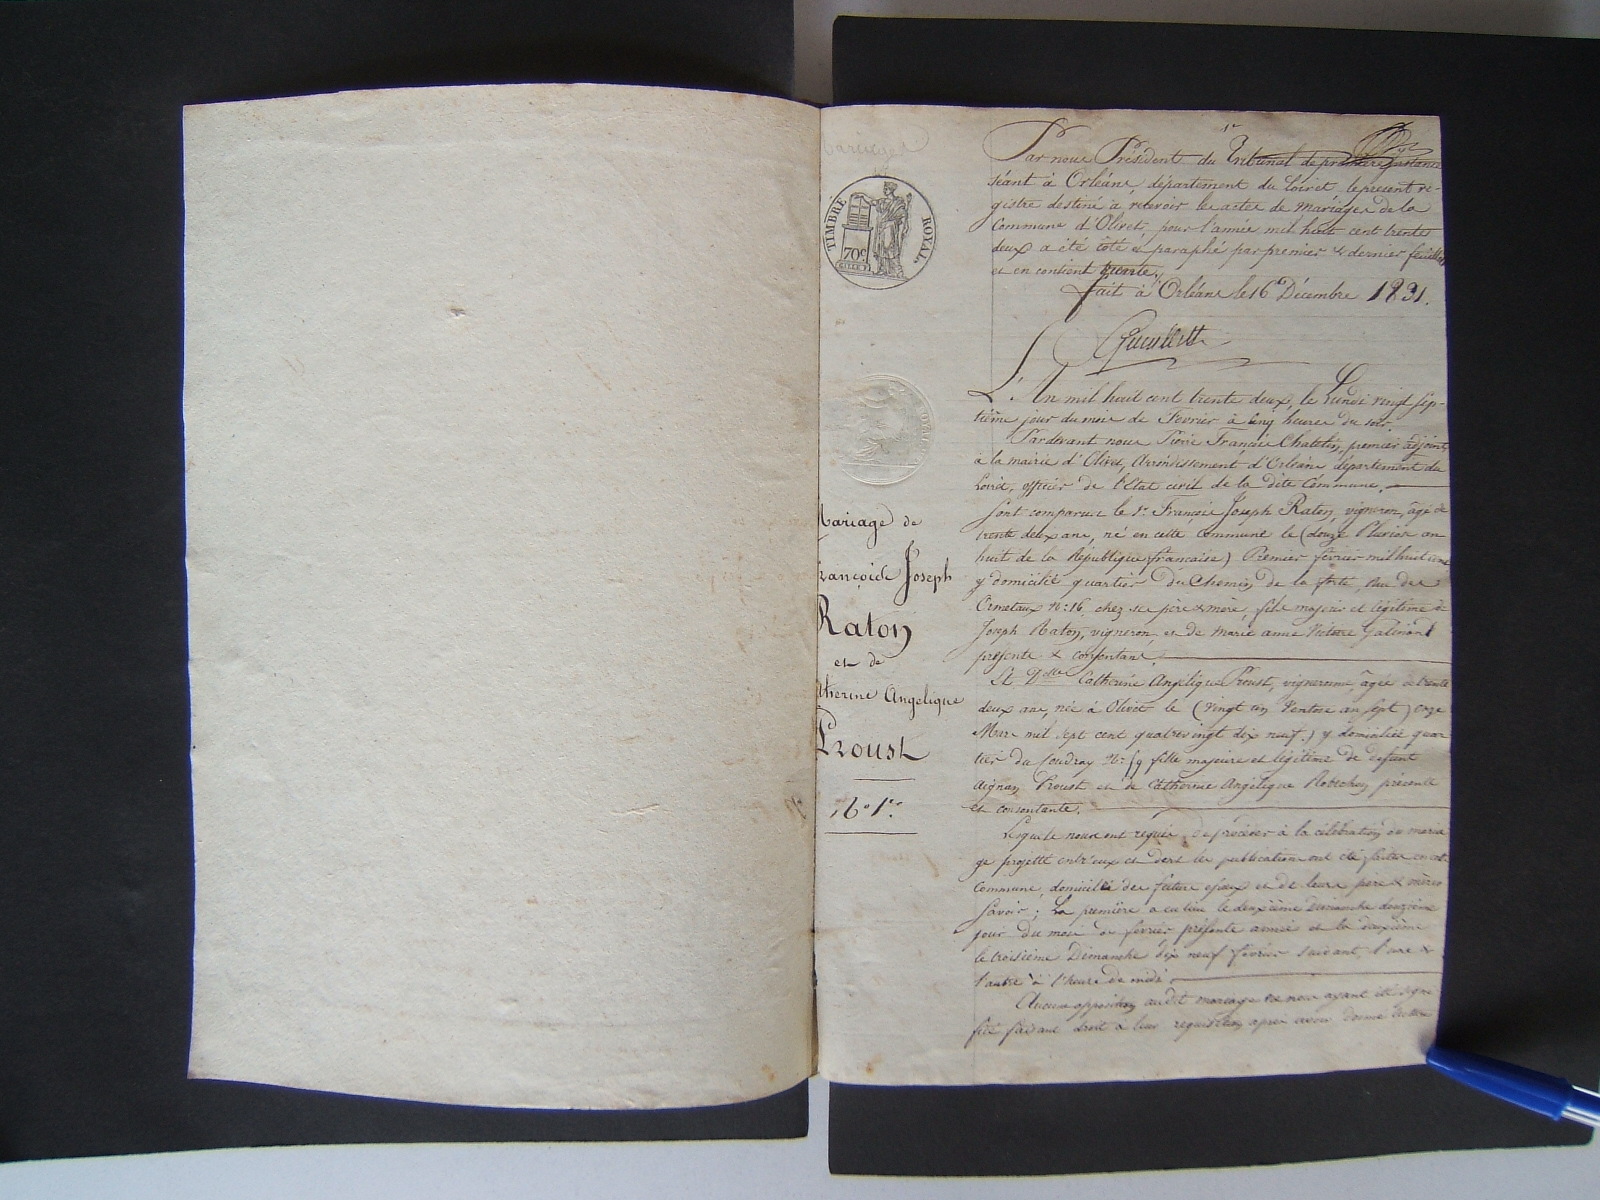 Mariages
TIMBRE ROYAL
70c
1er
Par nous Président du Tribunal de première instance
séant à Orléans, département du Loiret, le présent re-
gistre destiné à recevoir les actes de mariages de la
Commune d'Olivet, pour l'année mil huit cent trente
deux a été coté et paraphé par premier & dernier feuillet
et en contient trente.
Fait à Orléans le 16 Décembre 1831.
Mariage de
François Joseph
Raton
et de
Catherine Angelique
Proust
No 1er
L'An mil huit cent trente deux, le Lundi vingt sep-
tième jour du mois de Fevrier à cinq heures du soir
Pardevant nous Pierre François Chatelin, premier adjoint
à la mairie d'Olivet, Arrondissement d'Orléans département du
Loiret, officier de l'Etat civil de la dite Commune.
sont comparus le Sr. François Joseph Raton, vigneron, âgé de
trente deux ans, né en cette commune le (douze Pluviose an
huit de la République française) Premier février mil huit cent
y domicilié quartier du Chemin de la ferté, rue des
Ormeteaux No: 16, chez ses père & mère, fils majeur et légitime de
Joseph Raton, vigneron, et de Marie anne Victoire
présents & consentans
Et Dlle Catherine Angelique Proust, vigneronne, âgée de trente
deux ans, née à Olivet le (vingt un Ventose an sept) onze
Mars mil sept cent quatrevingt dix neuf.) y domiciliée quar
tier du Coudray No: 59 fille majeure et légitime de defunt
Aignan Proust et de Catherine Angélique présente
et consentante.
Lesquels nous ont requis de procéder à la célébration du maria
ge projetté entr'eux et dont les publications ont été faites en cette
Commune, domicile des futurs époux et de leurs père & mères
Savoir; La première a eu lieu le deuxième Dimanche douzième
jour du mois de fevrier présente année et la deuxième
le troisième Dimanche dix neuf fevrier suivant, l'une &
l'autre à l'heure de midi
Aucune opposition audit mariage ne nous ayant été signi
fiée faisant droit à leur requisition, après avoir donné lecture